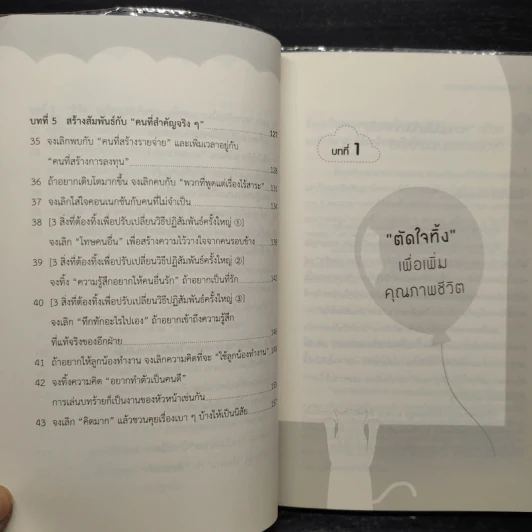 บทที่ 5 สร้างสัมพันธ์กับ "คนที่สำคัญจริง ๆ"
35 จงเลิกพบกับ "คนที่สร้างรายจ่าย" และเพิ่มเวลาอยู่กับ
"คนที่สร้างการลงทุน"
36 ถ้าอยากเติบโตมากขึ้น จงเลิกคบกับ "พวกที่พูดแต่เรื่องไร้สาระ"
37 จงเลิกใส่ใจคอนเนกชันกับคนที่ไม่จำเป็น
38 [3 สิ่งที่ต้องทิ้งเพื่อปรับเปลี่ยนวิธีปฏิสัมพันธ์ครั้งใหญ่ ①]
จงเลิก "โทษคนอื่น" เพื่อสร้างความไว้วางใจจากคนรอบข้าง
39 [3 สิ่งที่ต้องทิ้งเพื่อปรับเปลี่ยนวิธีปฏิสัมพันธ์ครั้งใหญ่ ②]
จงทิ้ง "ความรู้สึกอยากให้คนอื่นรัก" ถ้าอยากเป็นที่รัก
40 [3 สิ่งที่ต้องทิ้งเพื่อปรับเปลี่ยนวิธีปฏิสัมพันธ์ครั้งใหญ่ ③]
จงเลิก "ทึกทักอะไรไปเอง" ถ้าอยากเข้าถึงความรู้สึก
ที่แท้จริงของอีกฝ่าย
41 ถ้าอยากให้ลูกน้องทำงาน จงเลิกความคิดที่จะ "ใช้ลูกน้องทำงาน"
42 จงทิ้งความคิด "อยากทำตัวเป็นคนดี"
การเล่นบทร้ายก็เป็นงานของหัวหน้าเช่นกัน
43 จงเลิก "คิดมาก" แล้วชวนคุยเรื่องเบา ๆ บ้างให้เป็นนิสัย
บทที่ 1
"ตัดใจทิ้ง"
เพื่อเพิ่ม
คุณภาพชีวิต